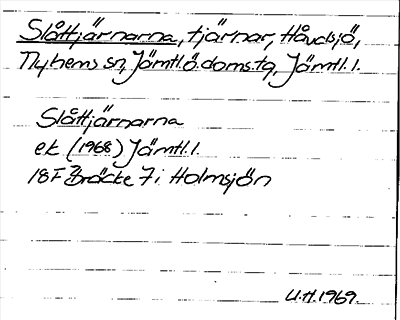 Slåttjärnarna, tjärnar, Håvdsjö,
Nyhems sn, Jämtl.ö.doms.tg, Jämtl.l.
Slåttjärnarna
ek (1968) Jämtl.l.
18F Bräcke 7i Holmsjön
U.H.1969.